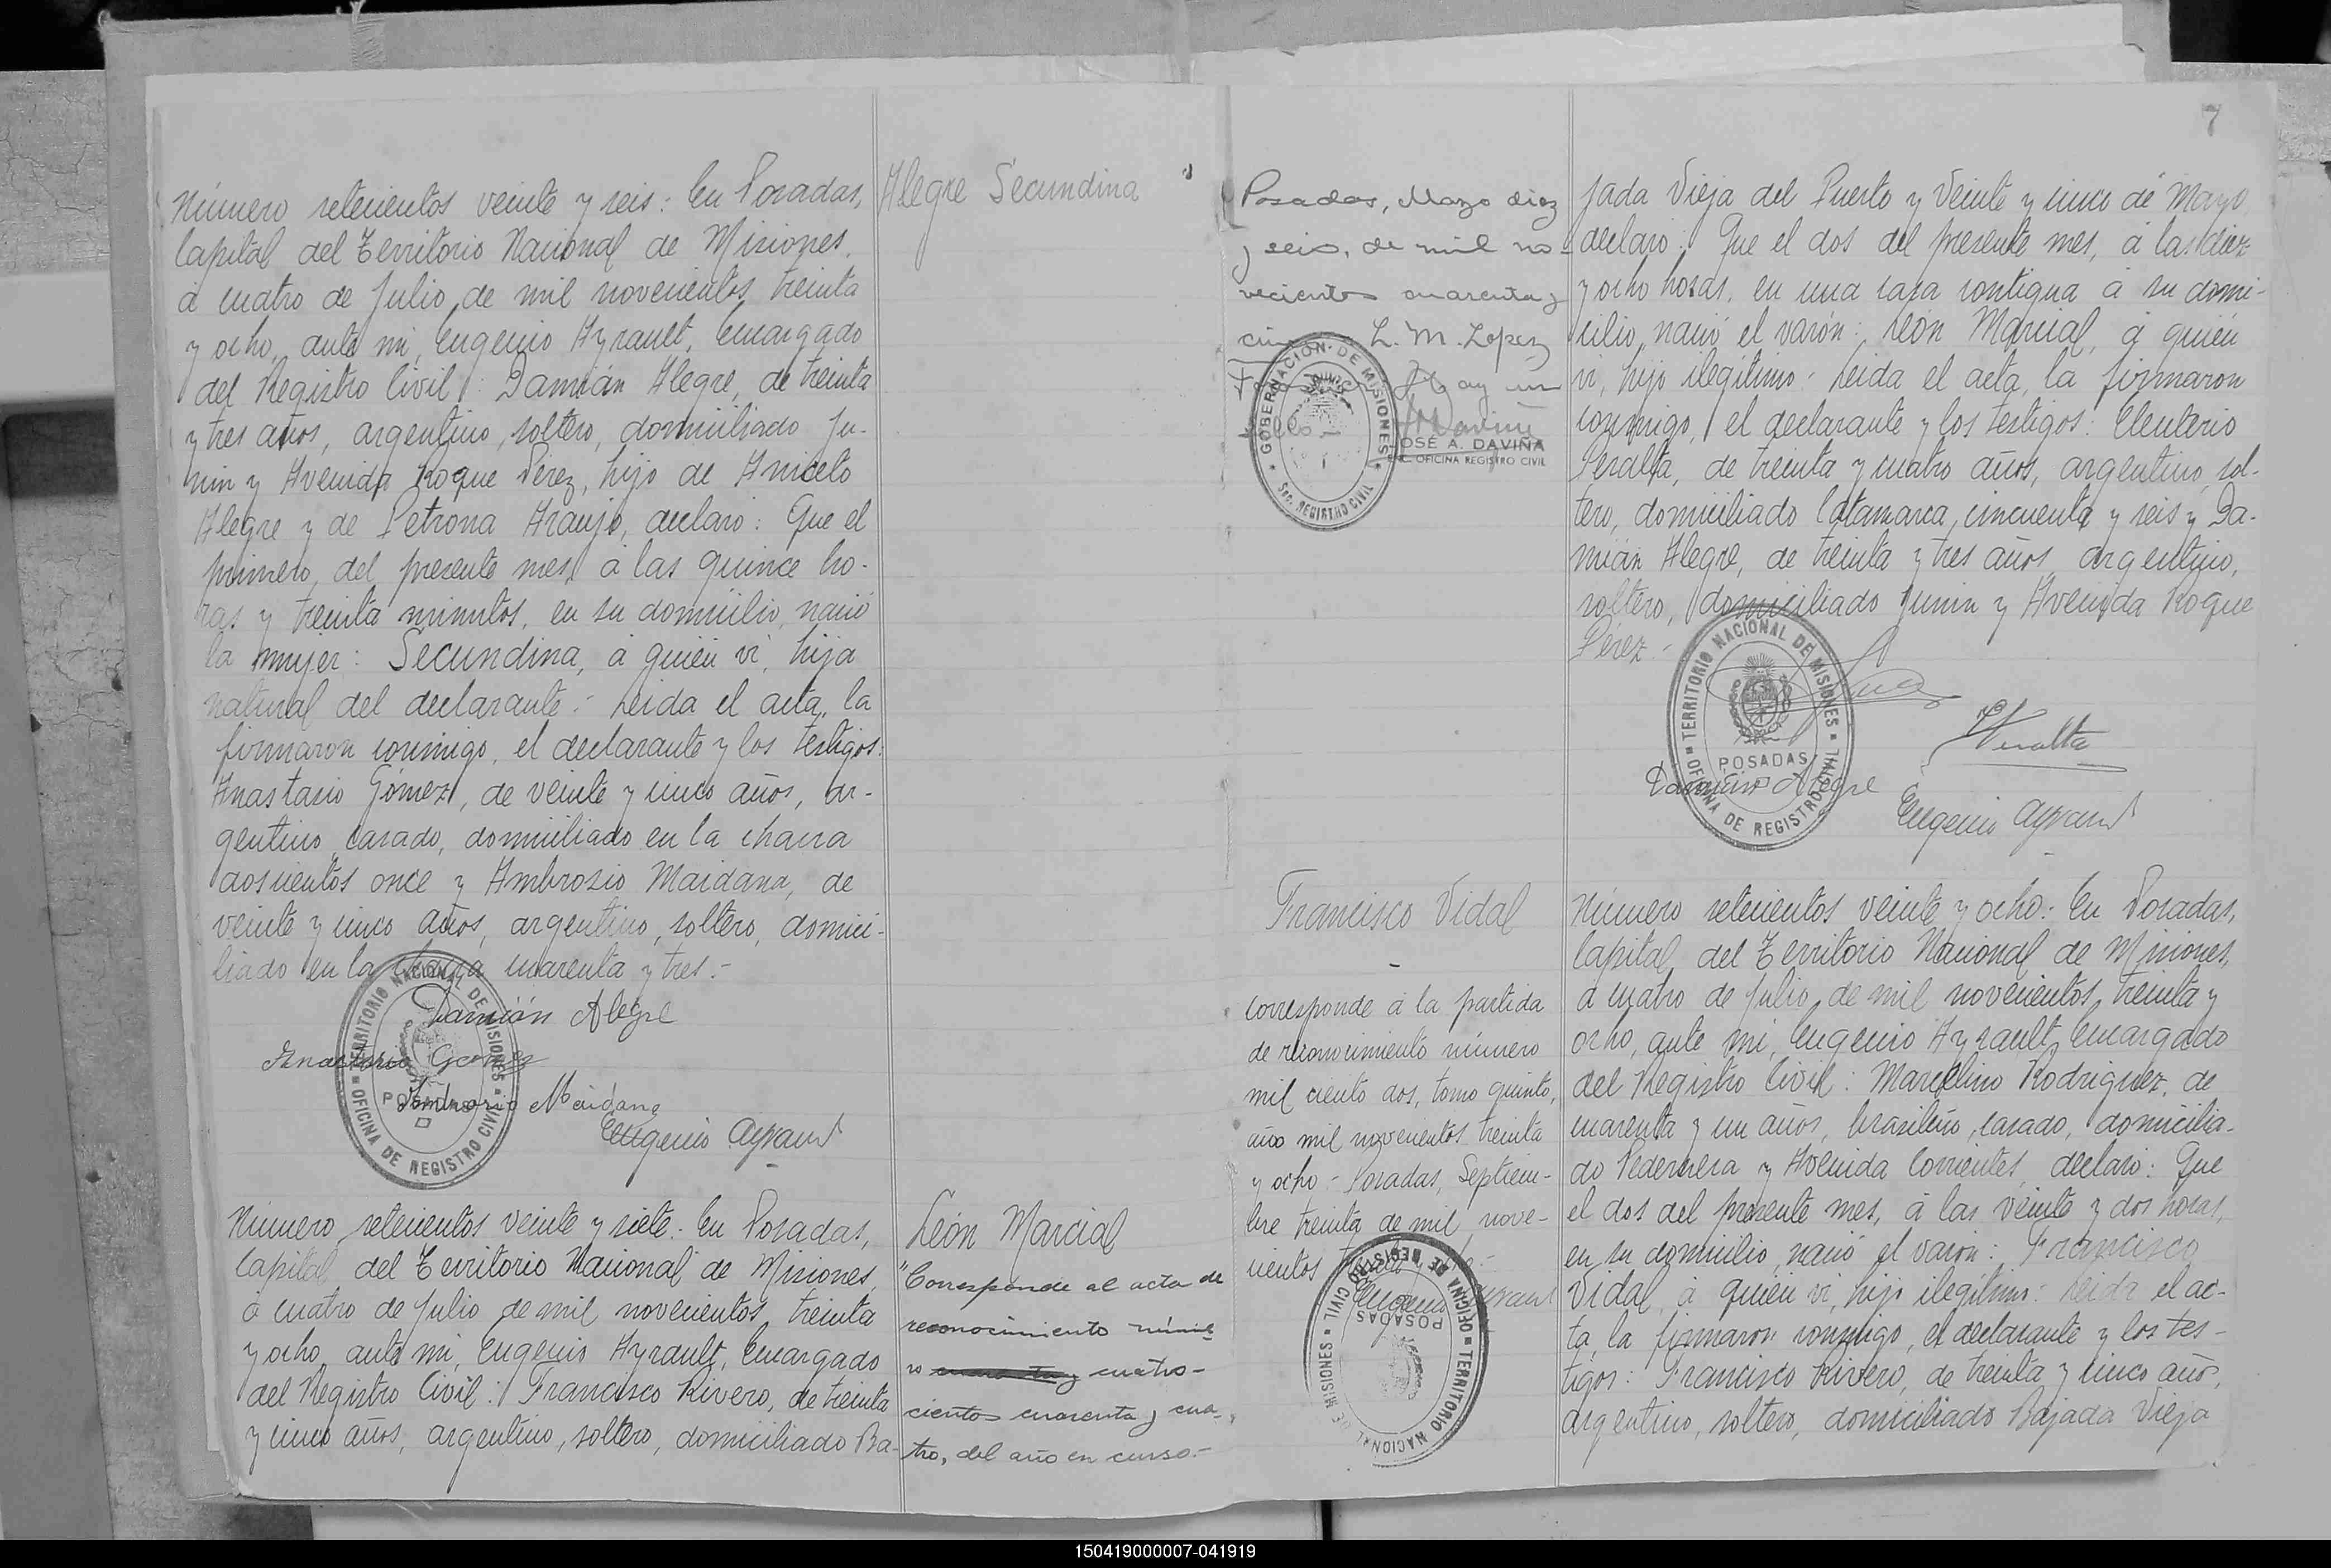 Número setecientos veinte y seis: En Posadas,
Capital del Territorio Nacional de Misiones,
á cuatro de Julio de mil novecientos treinta
y ocho, ante mi, Eugenio Ayrault, Encargado
del Registro Civil: Damián Alegre, de treinta
y tres años, argentino, soltero, domiciliado Ju-
nin y Avenida Roque Pérez, hijo de Aniceto
Alegre y de Petrona Araujo, declaró: Que el
primero del presente mes, á las quince ho-
ras y treinta minutos, en su domicilio, nació
la mujer: Secundina, á quién vi, hija
natural del declarante.- Leida el acta, la
firmaron conmigo, el declarante y los testigos:
Anastasio Gómez, de veinte y cinco años, ar-
gentino, casado, domiciliado en la chacra
doscientos once y Ambrosio Maidana, de
veinte y cinco años, argentino, soltero, domici-
liado en la chacra cuarenta y tres.-
Damián Alegre
Anastasio Gomez
Ambrosio Maidana
Eugenio Ayrault
TERRITORIO NACIONAL DE MISIONES
POSADAS
OFICINA DE REGISTRO CIVIL
Alegre Secundina
Número setecientos veinte y siete: En Posadas,
Capital del Territorio Nacional de Misiones,
á cuatro de Julio de mil novecientos treinta
y ocho, ante mi, Eugenio Ayrault, Encargado
del Registro Civil: Francisco Rivero, de treinta
y cinco años, argentino, soltero, domiciliado Ba-
León Marcial
"Corresponde al acta de
reconocimiento núme-
ro cuatro-
cientos cuarenta y cua-
tro, del año en curso.-
Posadas, Mayo diez
y seis, de mil no-
vecientos cuarenta y
L. M. Lopez
Hay un
sello-
GOBERNACIÓN DE MISIONES
Sec. REGISTRO CIVIL
JOSÉ A. DAVIÑA
ENC. OFICINA REGISTRO CIVIL
7
jada Vieja del Puerto y Veinte y cinco de Mayo
declaró: Que el dos del presente mes, á las diez
y ocho horas, en una casa contigua á su domi-
cilio, nació el varón: León Marcial, á quién
vi, hijo ilegítimo.- Leida el acta, la firmaron
conmigo, el declarante y los testigos: Eleuterio
Peralta, de treinta y cuatro años, argentino, sol-
tero, domiciliado Catamarca, cincuenta y seis y Da-
mián Alegre, de treinta y tres años, argentino,
soltero, domiciliado Junin y Avenida Roque
Pérez.-
EPeralta
Damián Alegre
Eugenio Ayrault
TERRITORIO NACIONAL DE MISIONES
POSADAS
OFICINA DE REGISTRO CIVIL
Francisco Vidal
-
Corresponde á la partida
de reconocimiento número
mil ciento dos, tomo quinto,
año mil novecientos treinta
y ocho.- Posadas, Septiem-
bre treinta de mil nove-
cientos
Eugenio Ayrault
TERRITORIO NACIONAL DE MISIONES
POSADAS
OFICINA DE REGISTRO CIVIL
Número setecientos veinte y ocho: En Posadas,
Capital del Territorio Nacional de Misiones,
á cuatro de Julio de mil novecientos treinta y
ocho, ante mi, Eugenio Ayrault, Encargado
del Registro Civil: Marcelino Rodriguez, de
cuarenta y un años, brasileño, casado, domicilia-
do Pedernera y Avenida Corrientes, declaró: Que
el dos del presente mes, á las veinte y dos horas,
en su domicilio, nació el varón: Francisco
Vidal, á quién vi, hijo ilegítimo: Leida el ac-
ta, la firmaron conmigo, el declarante y los tes-
tigos: Francisco Rivero, de treinta y cinco años,
argentino, soltero, domiciliado Bajada Vieja
150419000007-041919